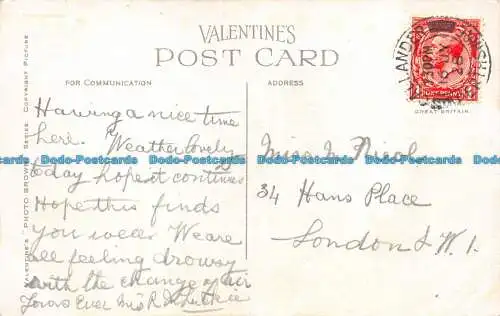 VALENTINE'S
POST CARD
FOR COMMUNICATION
ADDRESS
GREAT BRITAIN.
VALENTINE'S "PHOTO BROWN" SERIES COPYRIGHT PICTURE
Having a nice time
here. Weather lovely
today hope it continues
Hope this finds
you well. We are
all feeling drowsy
with the change of air
Yours Ever Mrs R
Miss N. Nicol
34 Hans Place
London S.W.1.
Dodo-Postcards Dodo-Postcards Dodo-Postcards Dodo-Postcards
Dodo-Postcards Dodo-Postcards Dodo-Postcards Dodo-Postcards
Dodo-Postcards Dodo-Postcards Dodo-Postcards Dodo-Postcards